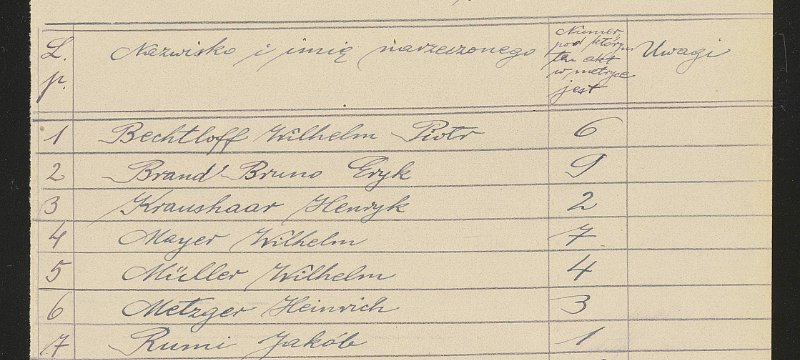 L. p. Nazwisko i imię narzeczonego Numer pod którym ten akt w metryce jest Uwagi
1 Bechtloff Wilhelm Piotr 6
2 Brand Bruno Eryk 9
3 Kraushaar Henryk 2
4 Mayer Wilhelm 7
5 Müller Wilhelm 4
6 Metzger Heinrich 3
7 Rumi Jakób 1